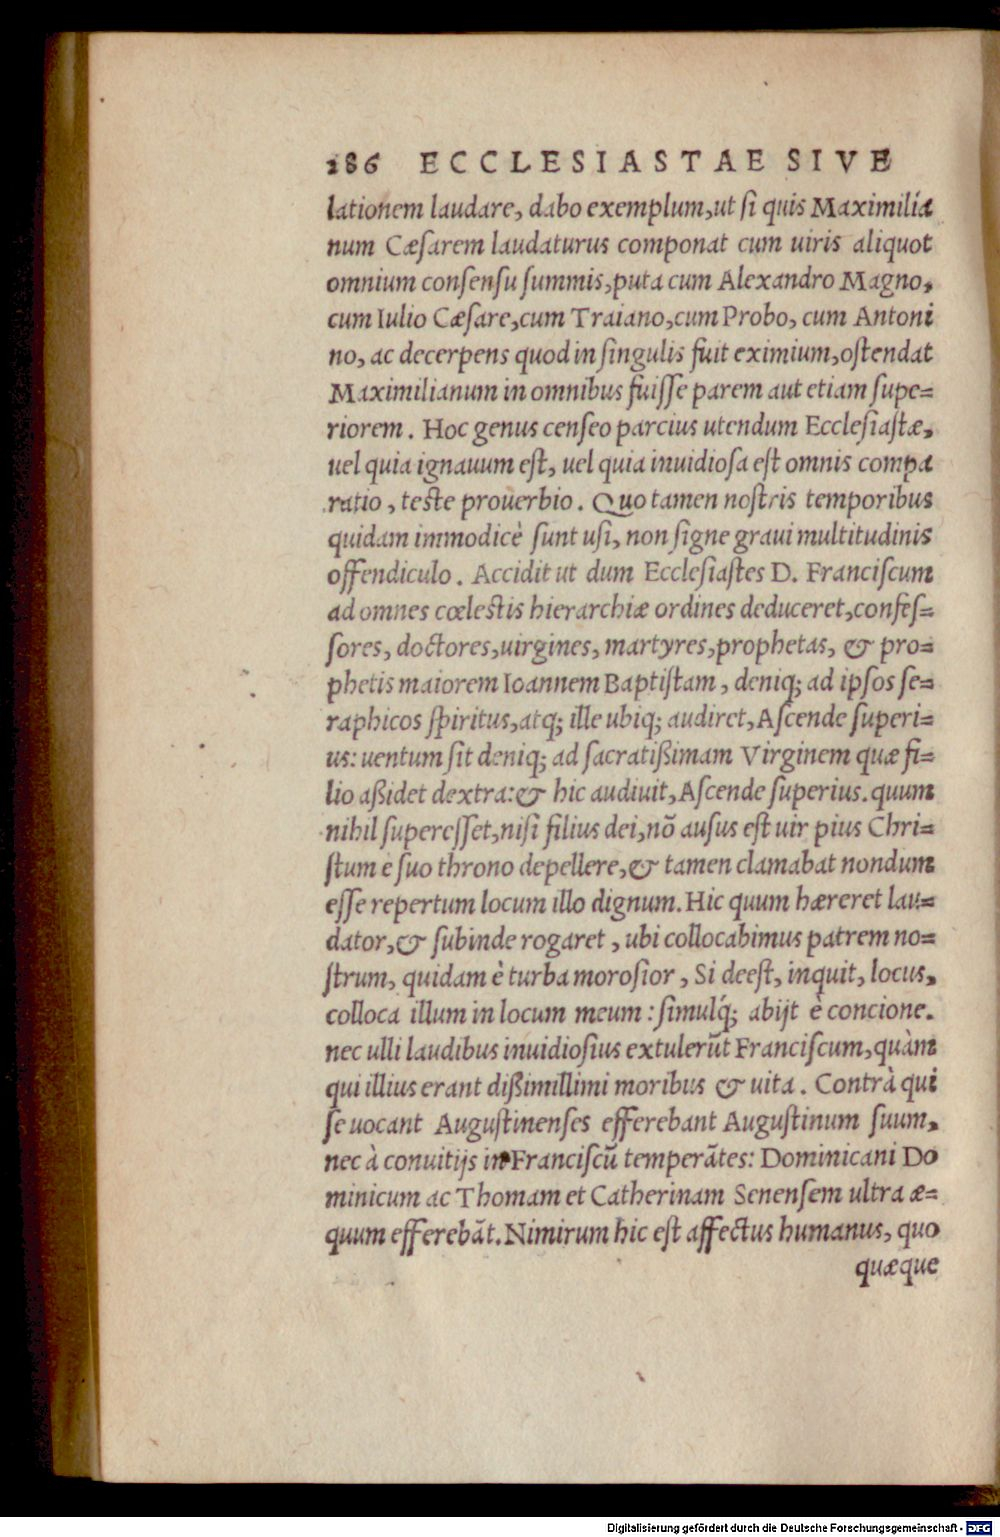 286 ECCLESIASTAE SIVE
lationem laudare, dabo exemplum, ut ſi quis Maximiliá
num Cæſarem laudaturus componat cum uiris aliquot
omnium conſenſu ſummis, puta cum Alexandro Magno,
cum Iulio Cæſare, cum Traiano, cum Probo, cum Antoni
no, ac decerpens quod in ſingulis fuit eximium, oſtendat
Maximilianum in omnibus fuiſſe parem aut etiam ſupe=
riorem. Hoc genus cenſeo parcius utendum Eccleſiaſtæ,
uel quia ignauum eſt, uel quia inuidioſa eſt omnis compa
ratio, teste prouerbio. Quo tamen noſtris temporibus
quidam immodicè ſunt uſi, non ſigne graui multitudinis
offendiculo. Accidit ut dum Eccleſiaſtes D. Franciſcum
ad omnes cœlestis hierarchiæ ordines deduceret, confeſ=
ſores, doctores, uirgines, martyres, prophetas, & pro=
phetis maiorem Ioannem Baptiſtam, deniq; ad ipſos ſe=
raphicos ſpiritus, atq; ille ubiq; audiret, Aſcende ſuperi=
us: uentum ſit deniq; ad ſacratißimam Virginem quæ fi=
lio aßidet dextra: & hic audiuit, Aſcende ſuperius. quum
nihil ſupereſſet, niſi filius dei, nõ auſus eſt uir pius Chri=
ſtum e ſuo throno depellere, & tamen clamabat nondum
eſſe repertum locum illo dignum. Hic quum hæreret lau=
dator, & ſubinde rogaret, ubi collocabimus patrem no=
ſtrum, quidam è turba moroſior, Si deeſt, inquit, locus,
colloca illum in locum meum: ſimulq́; abijt è concione.
nec ulli laudibus inuidioſius extulerũt Franciſcum, quàm
qui illius erant dißimillimi moribus & uita. Contrà qui
ſe uocant Auguſtinenſes efferebant Auguſtinum ſuum,
nec à conuitijs in Franciſcũ temperãtes: Dominicani Do
minicum ac Thomam et Catherinam Senenſem ultra æ=
quum efferebãt. Nimirum hic eſt affectus humanus, quo
quæque
Digitalisierung gefördert durch die Deutsche Forschungsgemeinschaft - DFG